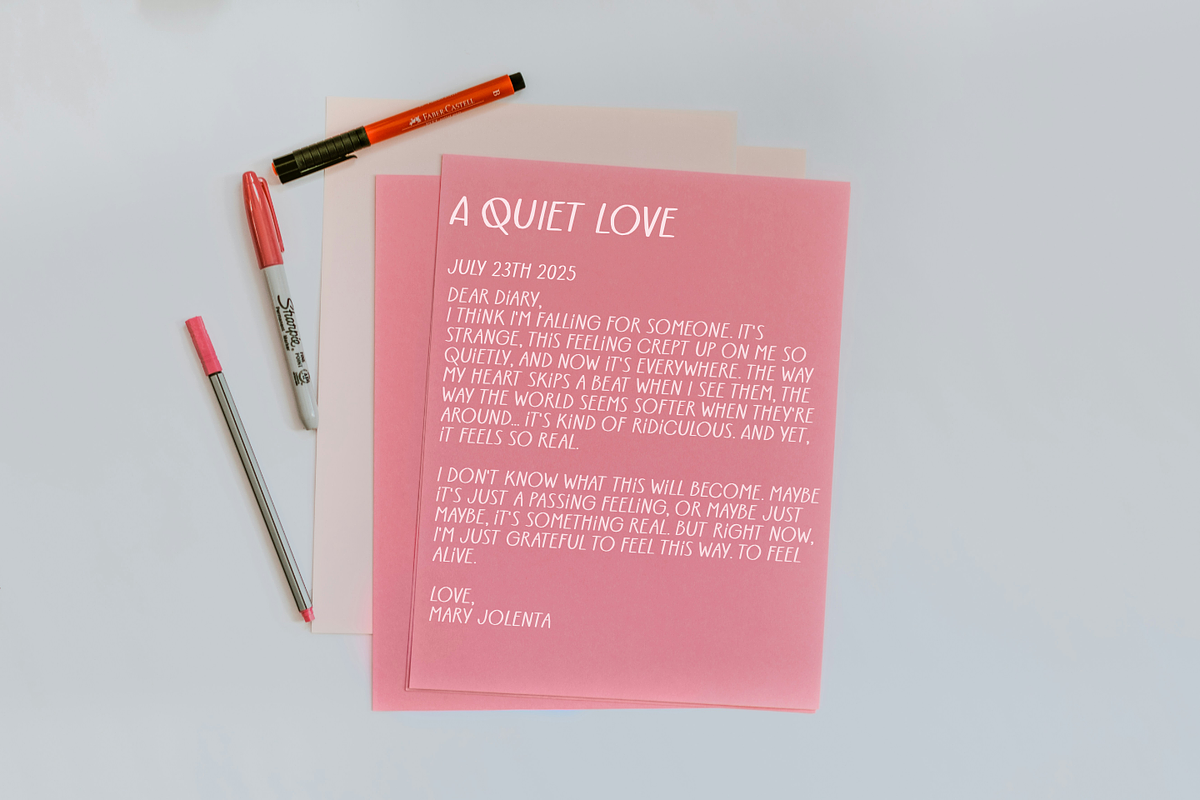 FABER-CASTELL
B
Sharpie.
A QUIET LOVE
JULY 23TH 2025
DEAR DIARY,
I THINK I'M FALLING FOR SOMEONE. IT'S
STRANGE, THIS FEELING CREPT UP ON ME SO
QUIETLY, AND NOW IT'S EVERYWHERE. THE WAY
MY HEART SKIPS A BEAT WHEN I SEE THEM, THE
WAY THE WORLD SEEMS SOFTER WHEN THEY'RE
AROUND... IT'S KIND OF RIDICULOUS. AND YET,
IT FEELS SO REAL.
I DON'T KNOW WHAT THIS WILL BECOME. MAYBE
IT'S JUST A PASSING FEELING, OR MAYBE JUST
MAYBE, IT'S SOMETHING REAL. BUT RIGHT NOW,
I'M JUST GRATEFUL TO FEEL THIS WAY. TO FEEL
ALIVE.
LOVE,
MARY JOLENTA